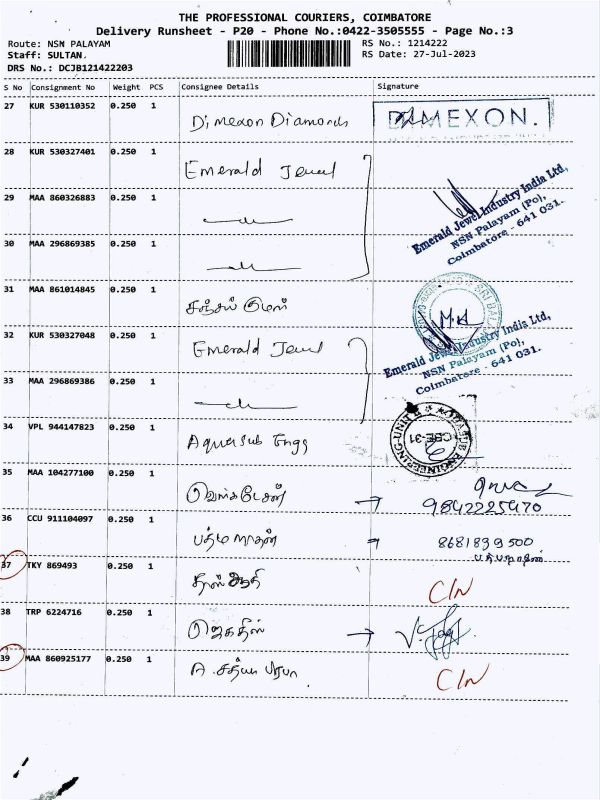 THE PROFESSIONAL COURIERS, COIMBATORE
Delivery Runsheet - P20 - Phone No.:0422-3505555 - Page No.:3
Route: NSN PALAYAM RS No.: 1214222
Staff: SULTAN. RS Date: 27-Jul-2023
DRS No.: DCJB121422203
S No Consignment No Weight PCS Consignee Details Signature
27 KUR 530110352 0.250 1 Dimexon Diamonds DIMEXON.
28 KUR 530327401 0.250 1 Emerald Jewel
29 MAA 860326883 0.250 1
Emerald Jewel Industry India Ltd,
NSN Palayam (Po),
Coimbatore - 641 031.
30 MAA 296869385 0.250 1
31 MAA 861014845 0.250 1
32 KUR 530327048 0.250 1 Emerald Jewel
Emerald Jewel Industry India Ltd,
NSN Palayam (Po),
Coimbatore - 641 031.
33 MAA 296869386 0.250 1
34 VPL 944147823 0.250 1 Aquasub Engg
AQUASUB ENGINEERING-UNIT II
CBE-31
35 MAA 104277100 0.250 1 வெங்கடேசன் → 9842225970
36 CCU 911104097 0.250 1 பத்மநாதன் → 8681839500
37 TKY 869493 0.250 1 C/N
38 TRP 6224716 0.250 1 ஜெகதீஸ் →
39 MAA 860925177 0.250 1 A. சத்யபிரபா C/N